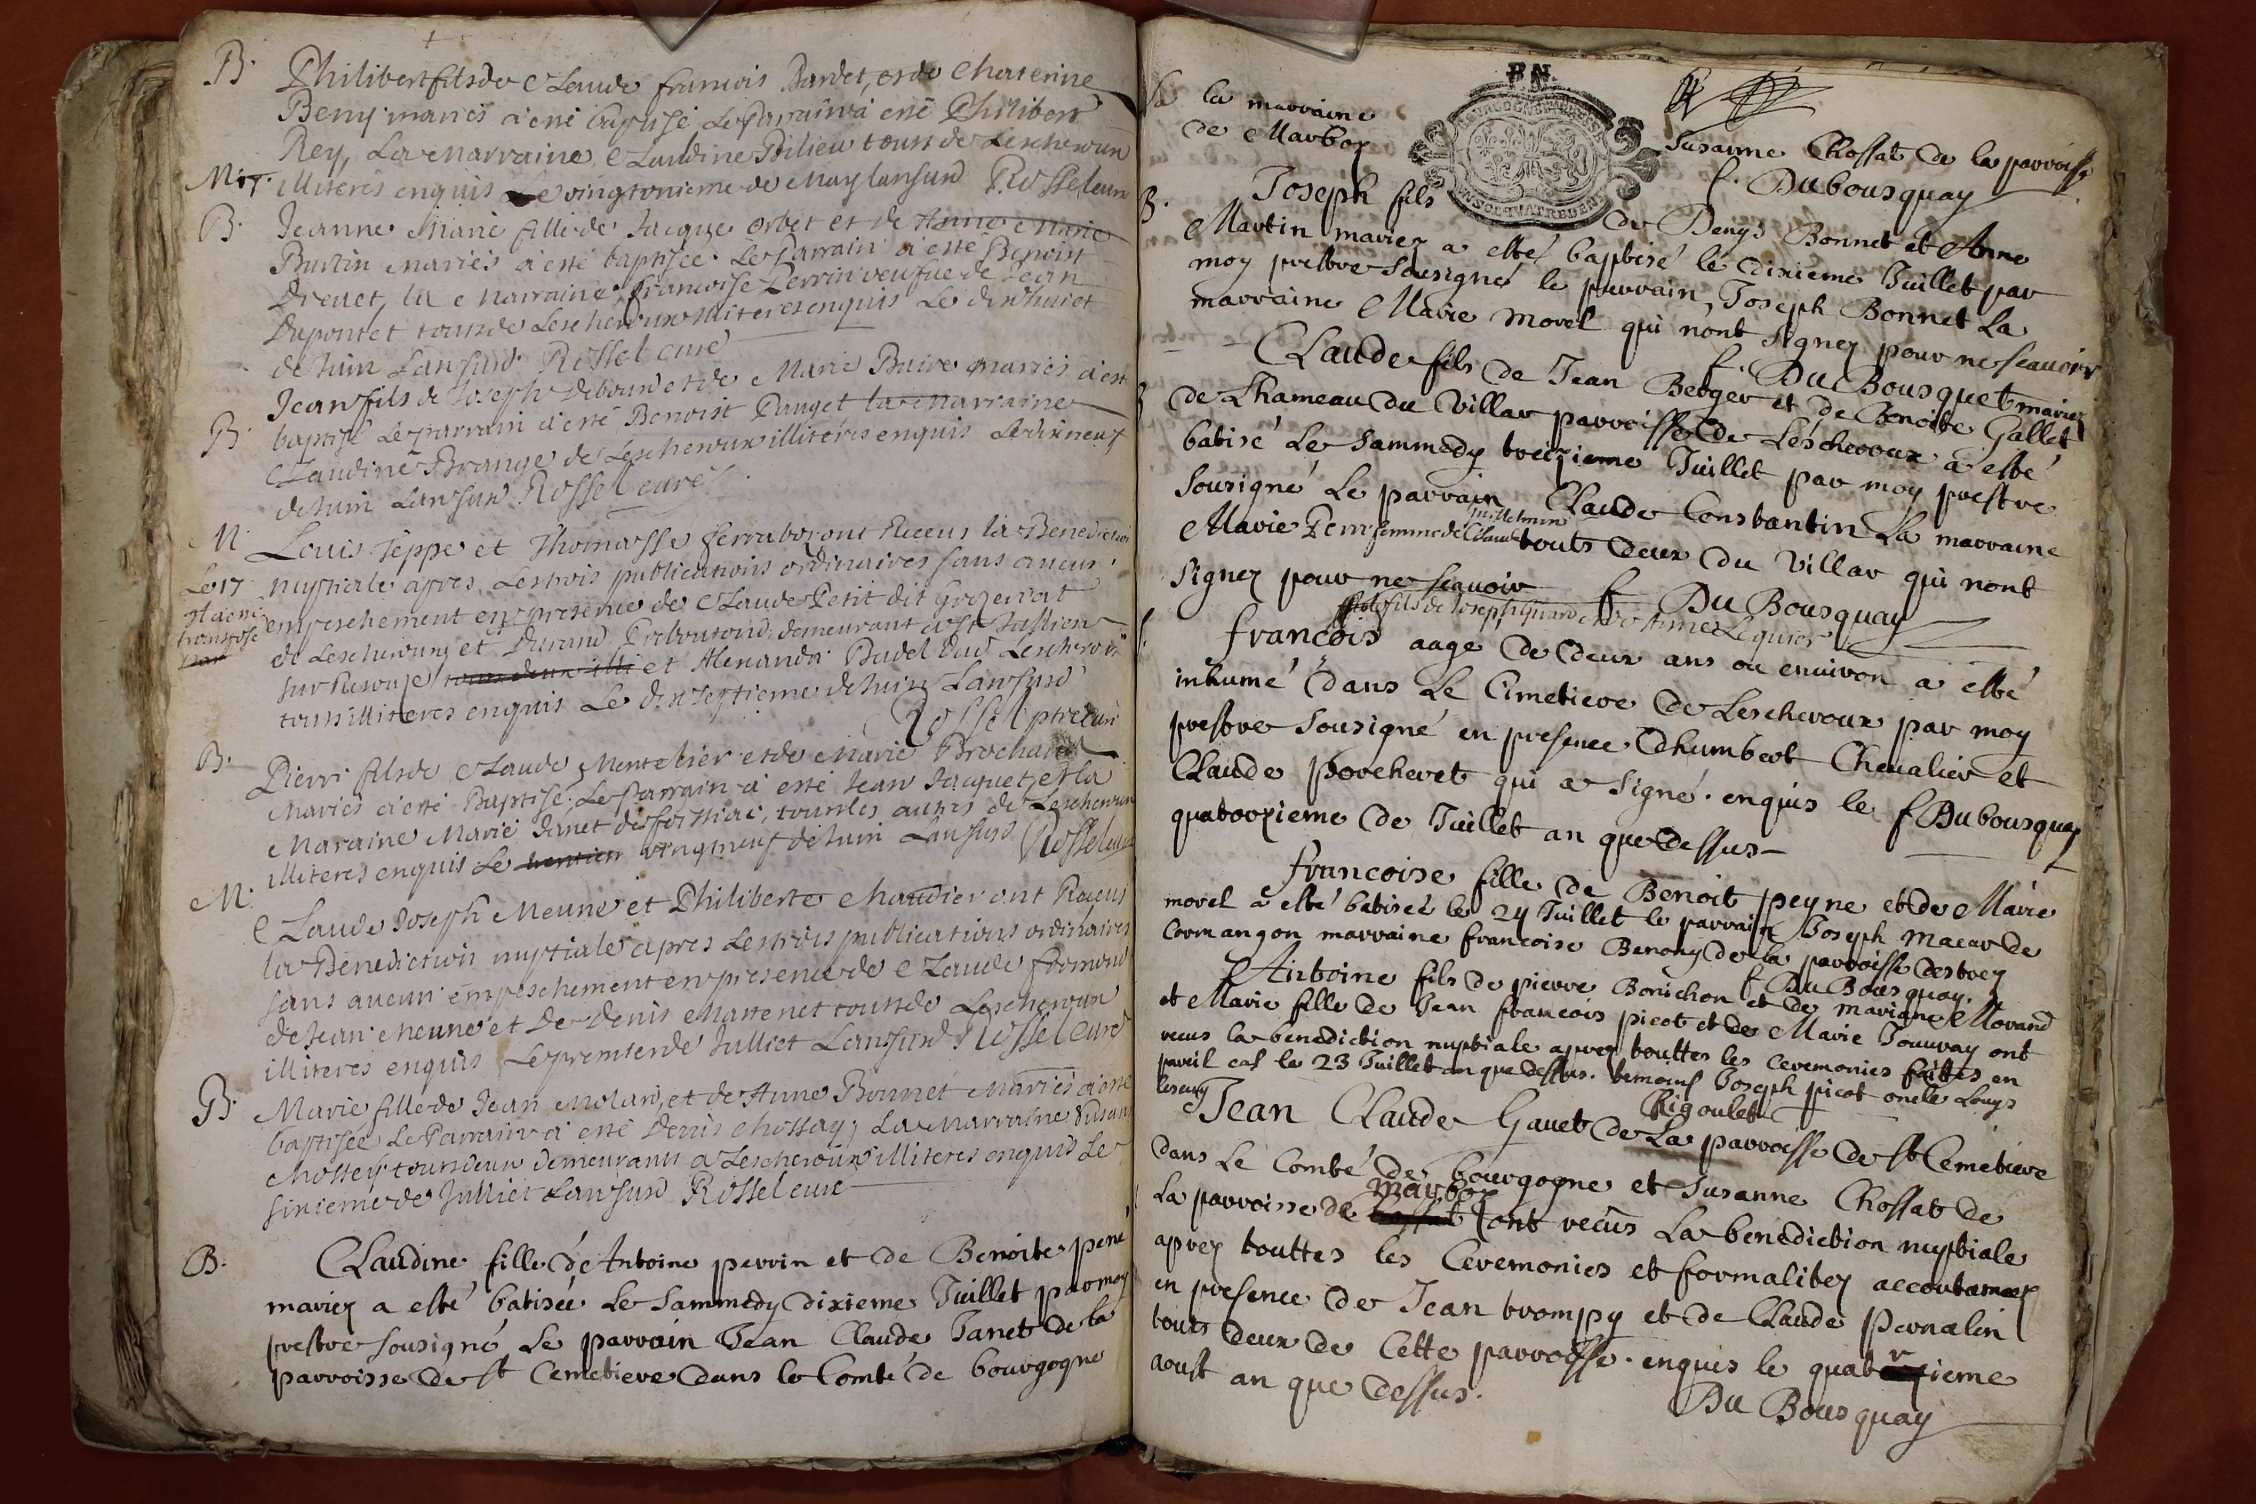 B. Philibert fils de Claude francois Bardet, et de Chaterine
Beny mariés a esté baptisé. Le Parrain a esté Philibert
Rey, La marraine Claudine Pilieu tous de Lescheroux
illiterés enquis le vingtunieme de May l'an susd Rossel curé
B. Jeanne Marie fille de Jacque orbet et de Anne Marie
Burtin mariés a esté baptisée. Le Parrain a esté Benoist
Drevet, la marraine francoise Perrin veufue de Jean
Dupontet tous de Lescheroux illiteres enquis Le dixhuict
de Juin L'an susd Rossel curé
B. Jean fils de Joseph Debourd et de Marie Buire mariés a esté
baptisé Le parrain a esté Benoist Pauget la marraine
Claudine Brange de Lescheroux illiterés enquis Le dixneuf
de Juin L'an susd Rossel curé
M. Louis Teppe et Thomasse ferrabor ont Receus la Benediction
Le 17 nuptiale apres Les trois publications ordinaires sans aucun
empeschement en presence de Claude Petit dit
de Lescheroux et Durand demeurant a St Jullien
sur Resouze et Alexandre Badel dud Lescheroux
tous illiteres enquis Le dix septieme de Juin L'an susd
Rossel ptre curé
B. Pierre fils de Claude Montelier et de Marie Brochand
Mariés a esté Baptisé. Le Parrain a esté Jean Jaquet, et la
Maraine Marie Janet de foissiat, tous les autres de Lescheroux
illiteres enquis Le vingtneuf de Juin L'an susd Rossel curé
M. Claude Joseph Meune et Philiberte Chaudier ont Receus
la Benediction nuptiale apres Les trois publications ordinaires
sans aucun empeschement en presence de Claude formond
de Jean Cheune et De Denis Martenet tous de Lescheroux
illiteres enquis Le premier de Julliet L'an susd Rossel Curé
B. Marie fille de Jean Molard, et de Anne Bonnet Mariés a esté
baptisée Le Parrain a esté Denis Chossay, La Marraine Susane
Chossey tous deux demeurants a Lescheroux illiteres enquis Le
sixieme de Julliet L'an susd Rossel curé
B. Claudine fille de Antoine perrin et de Benoite pené
mariez a esté batisée le Sammedy dixieme Juillet par moy
prestre sousigné Le parrain Jean Claude Janet de la
parroisse de st Cemetiere dans le Comté de bourgogne
la marraine Susanne Chossat de la parroisse
de Marboz f. Dubousquay
B. Joseph fils de Denys Bonnet et Anne
Martin mariez a esté baptisé le dixieme Juillet par
moy prestre sousigné le parrain, Joseph Bonnet La
marraine Marie morel qui n'ont signez pour ne scauoir
f. Du Bousquet
Claude fils de Jean Berger et de Benoite Gallet mariez
de Lhameau du Villar parroisse de Lescheroux a esté
batisé Le Sammedy treizieme Juillet par moy prestre
Sousigné Le parrain Claude Constantin La marraine
Marie femme de Claude touts deux du Villar qui nont
signez pour ne scauoir f Du Bousquay
fils de Joseph
francois aage de deux ans ou enuiron a esté
inhumé dans Le Cimetiere de Lescheroux par moy
prestre sousigné en presence dhumbert Cheualier et
Claude porcheret qui a signé. enquis le f Dubousquay
quatorzieme de Juillet an que dessus
francoise fille de Benoit peyne et de Marie
morel a esté batisée le 24 Juillet le parrain Joseph macar de
Cormangon marraine francoise Benony de la parroisse destrez
f Du Bousquay
Antoine fils de pierre Bonichon et de mariane Morand
et Marie fille de Jean francois picot et de Marie Jouuray ont
receus la benediction nuptiale aprez touttes les ceremonies faittes en
pareil cas le 23 Juillet an que dessus. temoins Joseph picot oncle Louys
Rigoulet
Jean Claude Gauet de La parroisse de st Cemetiere
dans Le Comté de bourgogne et Susanne Chossat de
La parroisse de Marboz ont receus La benediction nuptiale
aprez touttes les Ceremonies et formalitez accoutumez
en presence de Jean trompy et de Claude pernalin
touts deux de Cette parroisse. enquis le quatrieme
aoust an que dessus.
Du Bousquay